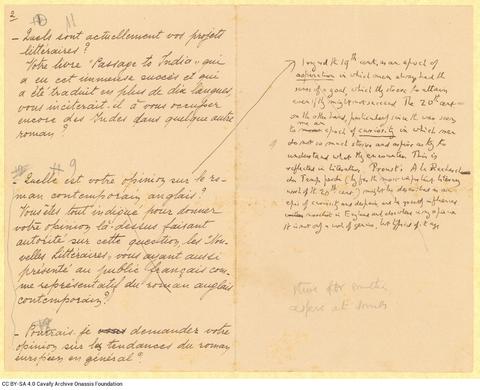 2
11
- Quels sont actuellement vos projets
littéraires?
Votre livre "Passage to India", qui
a eu cet immense succés et qui
a été traduit en plus de dix langues
vous inciterait-il à vous occuper
encore des Indes dans quelque autre
roman?
# 9
- Quelle est votre opinion sur le ro-
man contemporain anglais?
Vous êtes tout indiqué pour donner
votre opinion là-dessus faisant
autorité sur cette question, les "Nou-
velles Littéraires", vous ayant aussi
présenté au public français com-
me représentatif du roman anglais
contemporain?
- Pourrais-je vous demander votre
opinion sur les tendances du roman
européen en général?
I regard the 19th cent. as an epoch of
aspiration in which men always had the
sense of a goal, which they strove to attain
even if they might not succeed. The 20th cent -
on the other hand, particularly since the war seems
me an
to epoch of curiosity in which men
do not so much strive and aspire as try to
understand what they encounter. This is
reflected in literature. Proust's A la Recherche
du Temps perdu (by far the most important literary
work of the 20th cent) might be described as an
epic of curiosity and despair and its general influence
in England and elsewhere is
It is not only a work of genius, but typical of its age